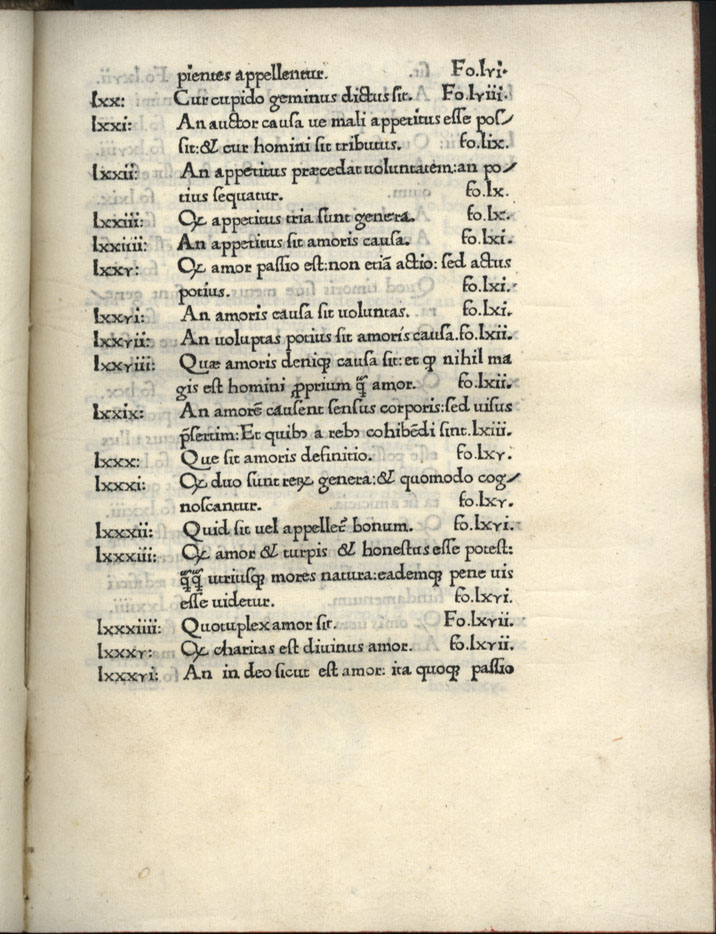 pientes appellentur. Fo.lvi.
lxx: Cur cupido geminus dictus sit. Fo.lviii.
lxxi: An auctor causa ue mali appetitus esse pos⸗
sit:& cur homini sit tributus. fo.lix.
lxxii: An appetitus præcedat uoluntatem:an po⸗
tius sequatur. fo.lx.
lxxiii: Qꝫ appetitus tria sunt genera. fo.lx.
lxxiiii: An appetitus sit amoris causa. fo.lxi.
lxxv: Qꝫ amor passio est:non etiā actio: sed actus
potius. fo.lxi.
lxxvi: An amoris causa sit uoluntas. fo.lxi.
lxxvii: An uoluptas potius sit amoris causa.fo.lxii.
lxxviii: Quæ amoris deniqꝫ causa sit:et ꝙ nihil ma
gis est homini ꝓprium qꝫ̄ amor. fo.lxii.
lxxix: An amorē causent sensus corporis:sed uisus
p̄sertim:Et quibꝰ a rebꝰ cohibēdi sint.lxiii.
lxxx: Que sit amoris definitio. fo.lxv.
lxxxi: Qꝫ duo sunt reꝝ genera:& quomodo cog⸗
noscantur. fo.lxv.
lxxxii: Quid sit uel appelleť bonum. fo.lxvi.
lxxxiii: Qꝫ amor & turpis & honestus esse potest:
qꝫ̄qꝫ̄ utriusqꝫ mores natura:eademqꝫ pene uis
esse uidetur. fo.lxvi.
lxxxiiii: Quotuplex amor sit. Fo.lxvii.
lxxxv: Qꝫ charitas est diuinus amor. fo.lxvii.
lxxxvi: An in deo sicut est amor: ita quoqꝫ passio